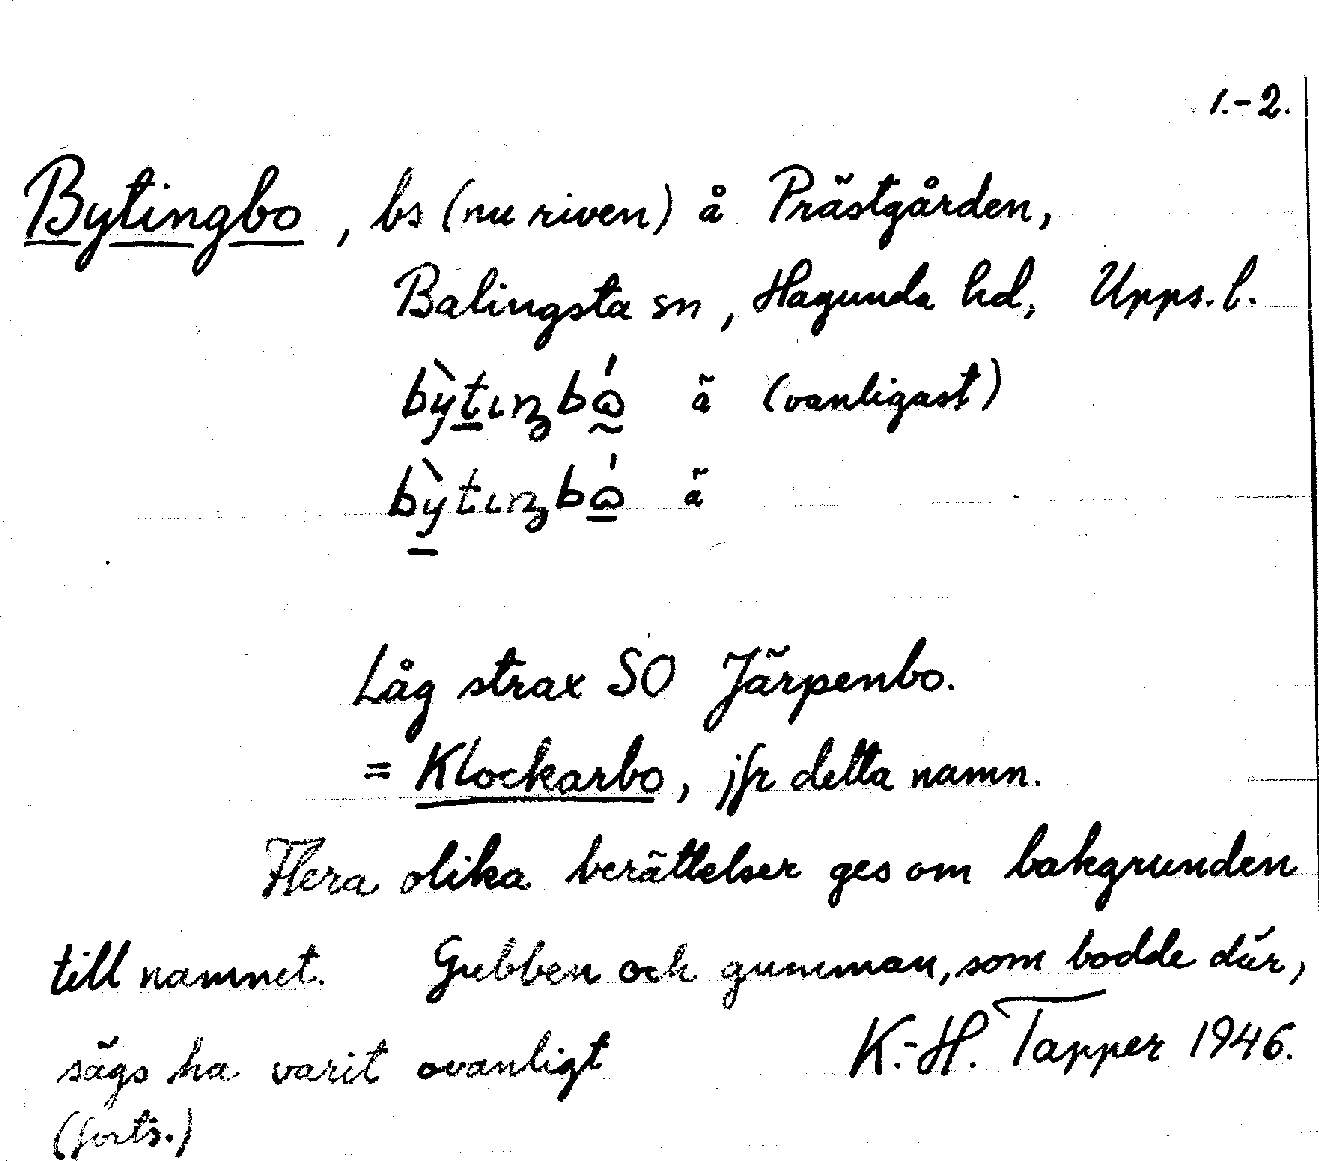 1.-2.
Bytingbo, bs (nu riven) å Prästgården,
Balingsta sn, Hagunda hd, Upps. l.
ä (vanligast)
ä
Låg strax SO Järpenbo.
= Klockarbo, jfr detta namn.
Flera olika berättelser ges om bakgrunden
till namnet. Gubben och gumman, som bodde där,
sägs ha varit ovanligt K.-H. Tapper 1946.
(forts.)